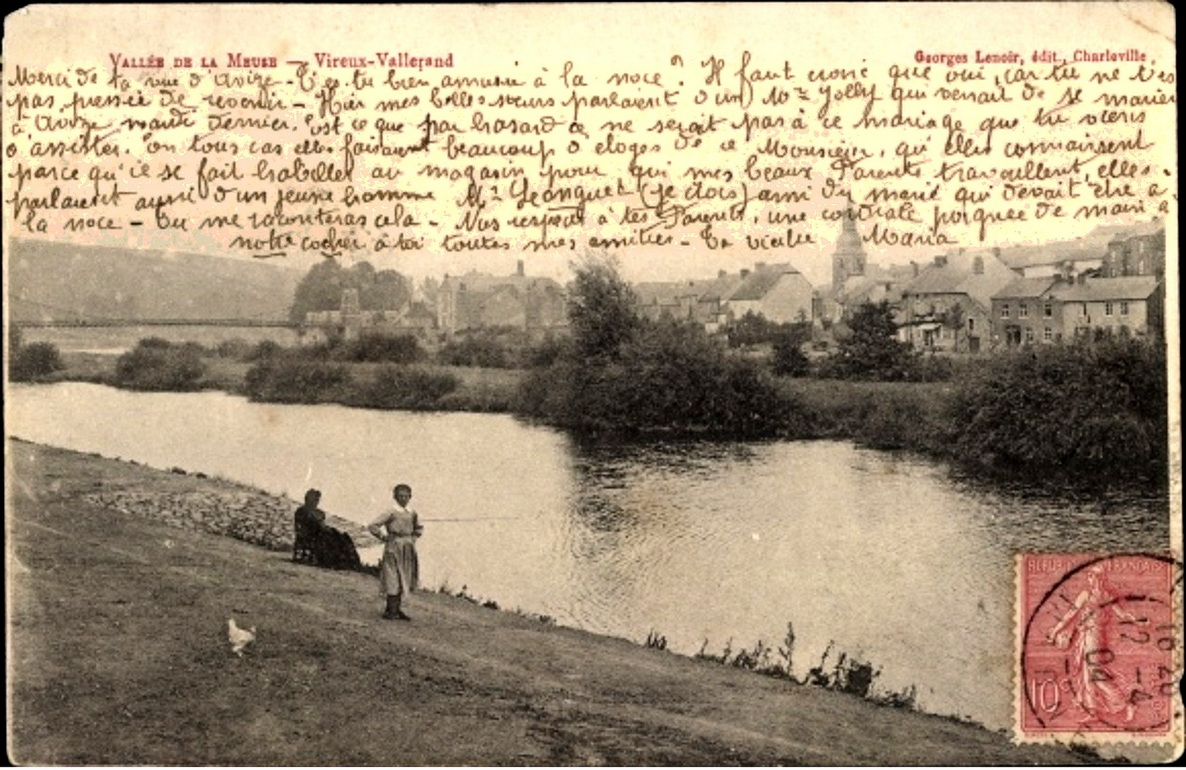 VALLÉE DE LA MEUSE — Vireux-Vallerand
Georges Lenoir, édit., Charleville
Merci de ta vue d'Avize - T'es tu bien amusée à la noce? Il faut croire que oui, car tu ne t'es
pas pressée de revenir - Hier mes belles sœurs parlaient d'un Mr Jolly qui venait de se marier
à Avize mardi dernier. Est ce que par hasard ce ne serait pas à ce mariage que tu viens
d'assister. En tous cas elles faisaient beaucoup d'éloges de ce Monsieur, qu'elles connaissent
parce qu'il se fait habiller au magasin pour qui mes beaux Parents travaillent, elles
parlaient aussi d'un jeune homme Mr (je crois) ami du marié qui devait être à
la noce - Tu me raconteras cela - Mes respects à tes Parents, une cordiale poignée de main à
notre cocher à toi toutes mes amitiés - Ta vieille Maria
REPUBLIQUE FRANÇAISE
10
16 20
17 -4
04